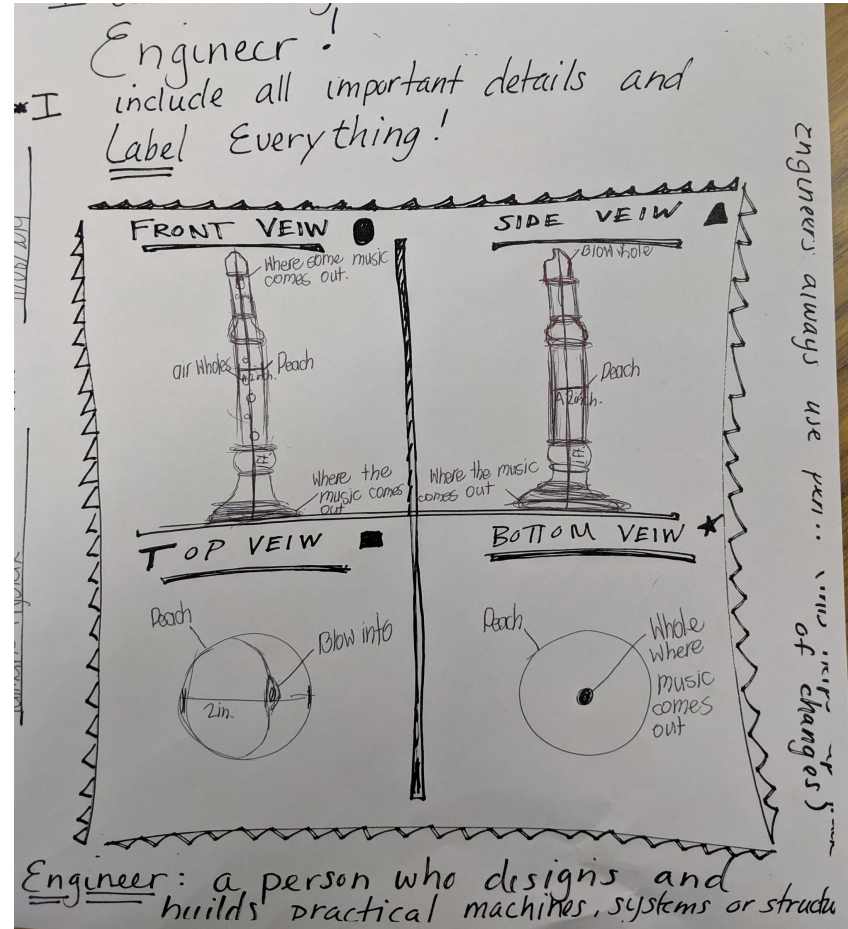 Engineer!
include all important details and
*I
Label Everything!
FRONT VEIW
Where some music
comes out.
air Wholes
Peach
2inch.
Where the
music comes
out
SIDE VEIW
Blow hole
Peach
A 2inch.
Where the music
comes out
TOP VEIW
Peach
Blow into
2in.
BOTTOM VEIW
Peach
Whole
where
music
comes
out
engineers always use
of changes)
Engineer: a person who designs and
builds practical machines, systems or